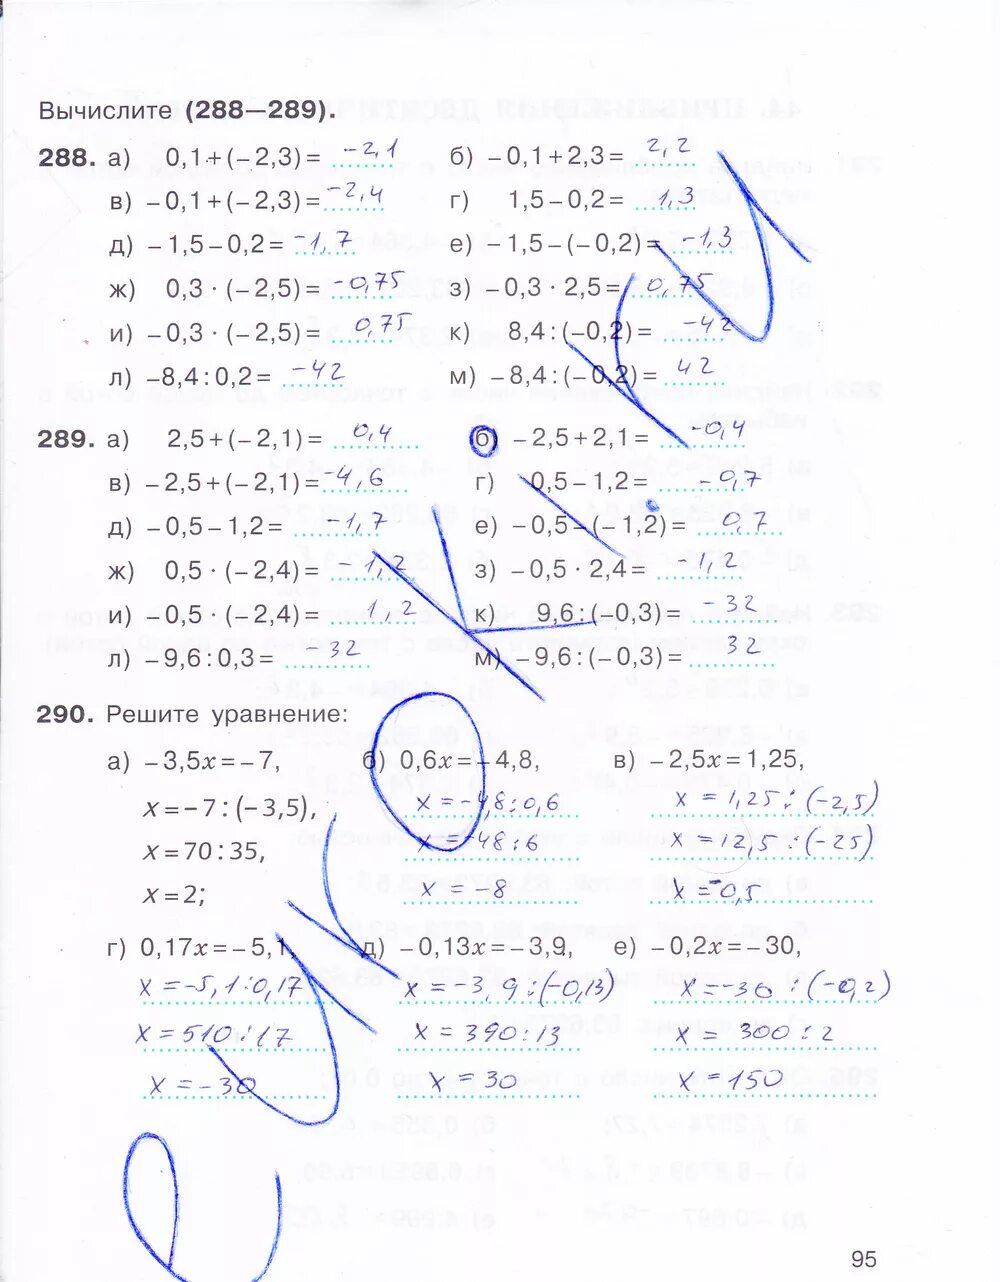 Вычислите (288—289).
288. а) 0,1+(−2,3)= −2,1 б) −0,1+2,3= 2,2
в) −0,1+(−2,3)= −2,4 г) 1,5−0,2= 1,3
д) −1,5−0,2= −1,7 е) −1,5−(−0,2)= −1,3
ж) 0,3 · (−2,5)= −0,75 з) −0,3 · 2,5= 0,75
и) −0,3 · (−2,5)= 0,75 к) 8,4:(−0,2)= −42
л) −8,4:0,2= −42 м) −8,4:(−0,2)= 42
289. а) 2,5+(−2,1)= 0,4 б) −2,5+2,1= −0,4
в) −2,5+(−2,1)= −4,6 г) 0,5−1,2= −0,7
д) −0,5−1,2= −1,7 е) −0,5−(−1,2)= 0,7
ж) 0,5 · (−2,4)= 1,2 з) −0,5 · 2,4= −1,2
и) 0,5 · (−2,4)= 1,2 к) 9,6:(−0,3)= −32
л) −9,6:0,3= 32 м) −9,6:(−0,3)= 32
290. Решите уравнение:
а) −3,5x=−7, б) 0,6x=−4,8, в) −2,5x=1,25,
x=−7:(−3,5), x=−4,8:0,6 x=1,25:(−2,5)
x=70:35, x=−48:6 x=12,5:(−25)
x=2; x=−8 x=−0,5
г) 0,17x=−5,1, д) −0,13x=−3,9, е) −0,2x=−30,
x=−5,1:0,17 x=−3,9:(−0,13) x=−30:(−0,2)
x=510:17 x=390:13 x=300:2
x=−30 x=30 x=150
95